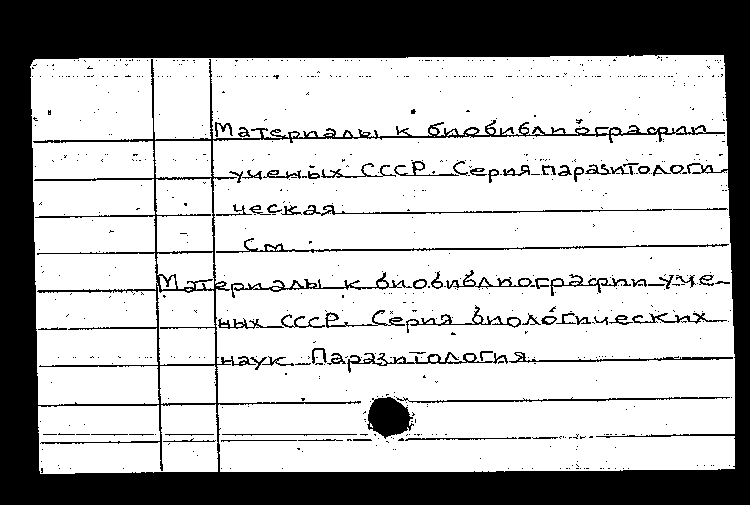 Материалы к биобиблиографии
ученых СССР. Серия паразитологи-
ческая.
См.:
Материалы к биобиблиографии уче-
ных СССР. Серия биологических
наук. Паразитология.